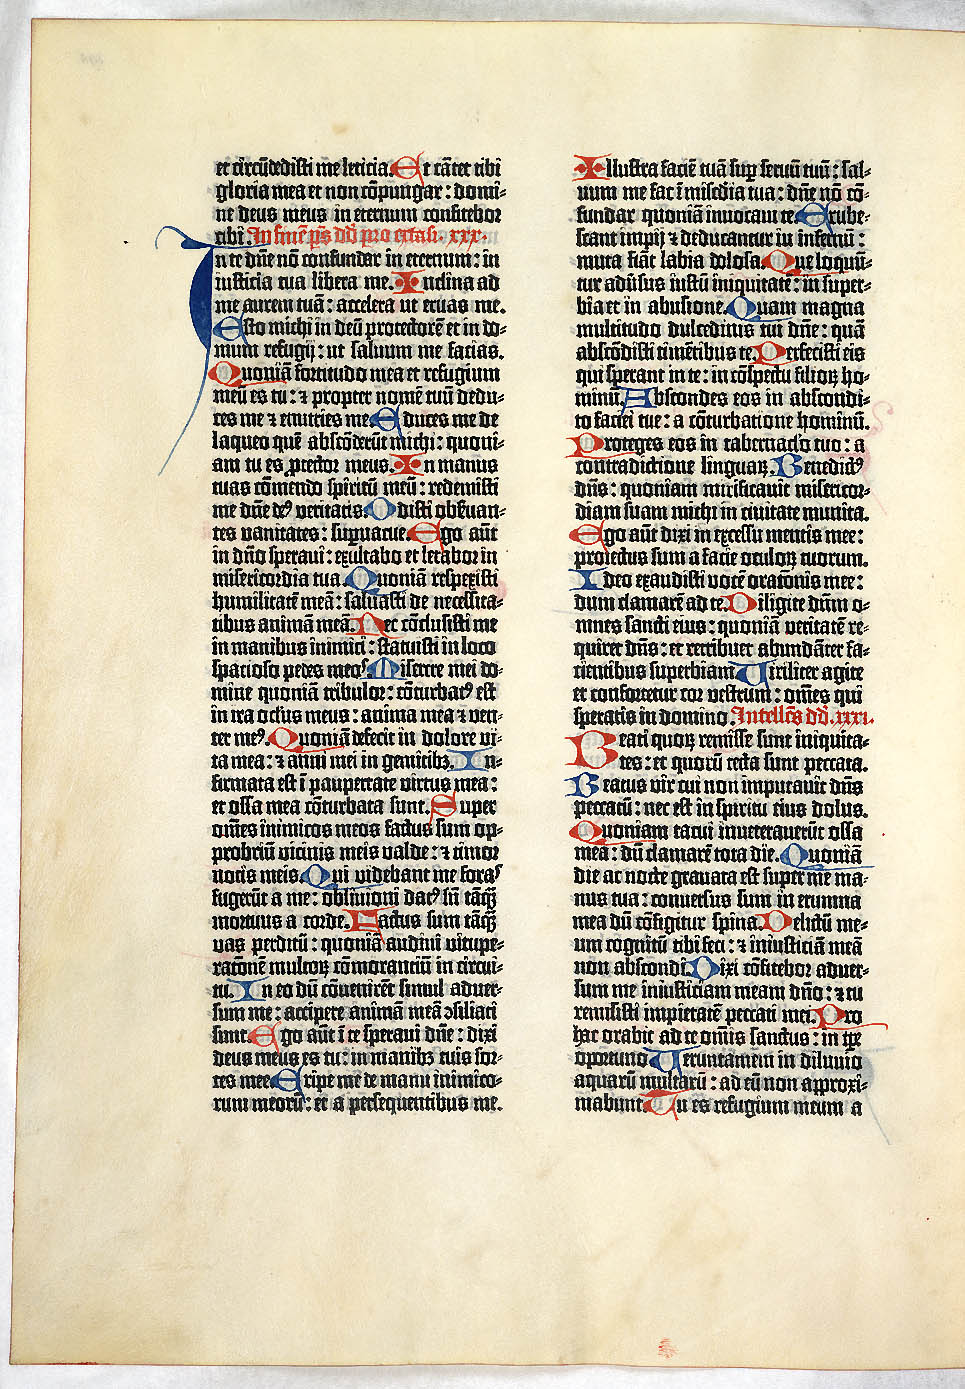 et circūdedisti me leticia. Et cātet tibi
gloria mea et non cōpungar : domi-
ne deus meus in eternum confitebor
tibi. In finē ps̄ dd̄ pro extasi. xxx.
In te dn̄e nō confundar in eternum : in
iusticia tua libera me. Inclina ad
me aurem tuā : accelera ut eruas me.
Esto michi in deū protectorē et in do-
mum refugij : ut saluum me facias.
Quoniā fortitudo mea et refugium
meū es tu : ⁊ propter nomē tuū dedu-
ces me ⁊ enutries me. Educes me de
laqueo quē abscōderūt michi : quoni-
am tu es ꝓtector meus. In manus
tuas cōmendo spiritū meū : redemisti
me dn̄e deꝰ veritatis. Odisti obseruan-
tes vanitates : suꝑuacue. Ego aūt
in dn̄o speraui : exultabo et letabor in
misericordia tua. Quoniā respexisti
humilitatē meā : saluasti de necessita-
tibus animā meā. Nec cōclusisti me
in manibus inimici : statuisti in loco
spacioso pedes meos. Miserere mei do-
mine quoniā tribulor : cōturbatꝰ est
in ira oclus meus : anima mea ⁊ ven-
ter meꝰ. Quoniā defecit in dolore vi-
ta mea : ⁊ anni mei in gemitibꝫ. In-
firmata est ī paupertate virtus mea :
et ossa mea cōturbata sunt. Super
om̄es inimicos meos factus sum op-
probriū vicinis meis valde : ⁊ timor
notis meis. Qui videbant me foras
fugerūt a me : obliuioni datꝰ sū tāꝙ̄
mortuus a corde. Factus sum tāꝙ̄
vas perditū : quoniā audiui vitupe-
ratōnem multoꝝ cōmorantiū in circui-
tu. In eo dū cōuenirēt simul aduer-
sum me : accipere animā meā ↄsiliati
sunt. Ego aūt ī te speraui dn̄e : dixi
deus meus es tu : in manibꝫ tuis sor-
tes mee. Eripe me de manu inimico-
rum meorū : et a persequentibus me.
Illustra faciē tuā suꝑ seruū tuū : sal-
uum me fac ī mis̄cdia tua : dn̄e nō cō-
fundar quoniā inuocaui te. Erube-
scant impij ⁊ deducantur in infernū :
muta fiāt labia dolosa. Que loquū-
tur aduersus iustū iniquitatē : in super-
bia et in abusione. Quam magna
multitudo dulcedinis tue dn̄e : quā
abscōdisti timētibus te. Perfecisti eis
qui sperant in te : in cōspectu filioꝝ ho-
minū. Abscondes eos in abscondi-
to faciei tue : a cōturbatione hominū.
Proteges eos in tabernaclo tuo : a
contradictione linguaꝝ. Benedictꝰ
dn̄s : quoniam mirificauit misericor-
diam suam michi in ciuitate munita.
Ego aūt dixi in excessu mentis mee :
proiectus sum a facie oculoꝝ tuorum.
Ideo exaudisti vocē oratōnis mee :
dum clamarē ad te. Diligite dn̄m o-
mnes sancti eius : quoniā veritatē re-
quiret dn̄s : et retribuet abundāter fa-
cientibus superbiam. Viriliter agite
et confortetur cor vestrum : om̄es qui
speratis in domino. Intellc̄s dd̄. xxxi.
Beati quoꝝ remisse sunt iniquita-
tes : et quorū tecta sunt peccata.
Beatus vir cui non imputauit dn̄s
peccatū : nec est in spiritu eius dolus.
Quoniam tacui inueterauerūt ossa
mea : dū clamarē tota die. Quoniā
die ac nocte grauata est super me ma-
nus tua : conuersus sum in erumna
mea dū cōfigitur spina. Delictū me-
um cognitū tibi feci : ⁊ iniusticiā meā
non abscondi. Dixi cōfitebor aduer-
sum me iniusticiam meam dn̄o : ⁊ tu
remisisti impietatē peccati mei. Pro
hac orabit ad te om̄is sanctus : in tp̄e
oportuno. Veruntamen in diluuio
aquarū multarū : ad eū non approxi-
mabunt. Tu es refugium meum a